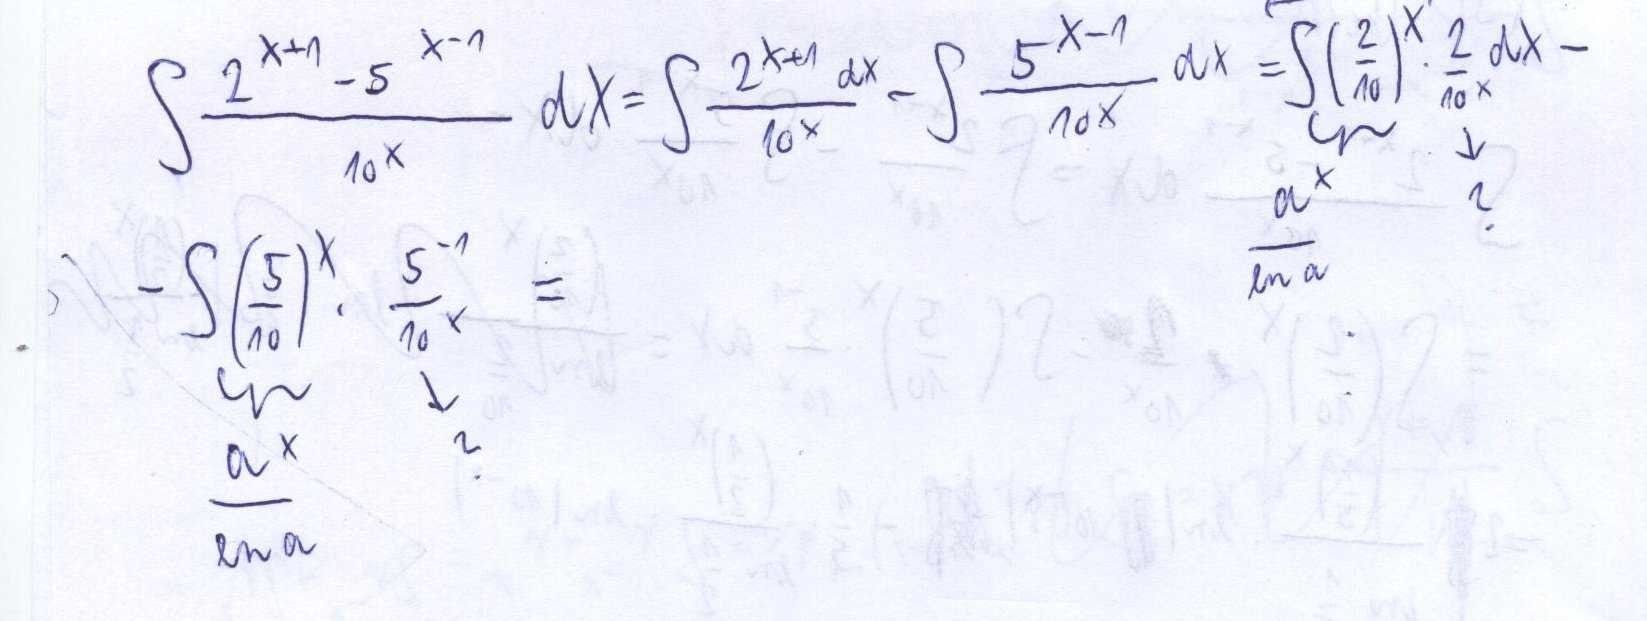 ∫ (2^(x+1) - 5^(x-1))/10^x dx = ∫ 2^(x+1) dx/10^x - ∫ 5^(x-1)/10^x dx = ∫ (2/10)^x · 2/10^x dx -
a^x/ln a ↓ ?
- ∫ (5/10)^x · 5^(-1)/10^x =
a^x/ln a ↓ ?